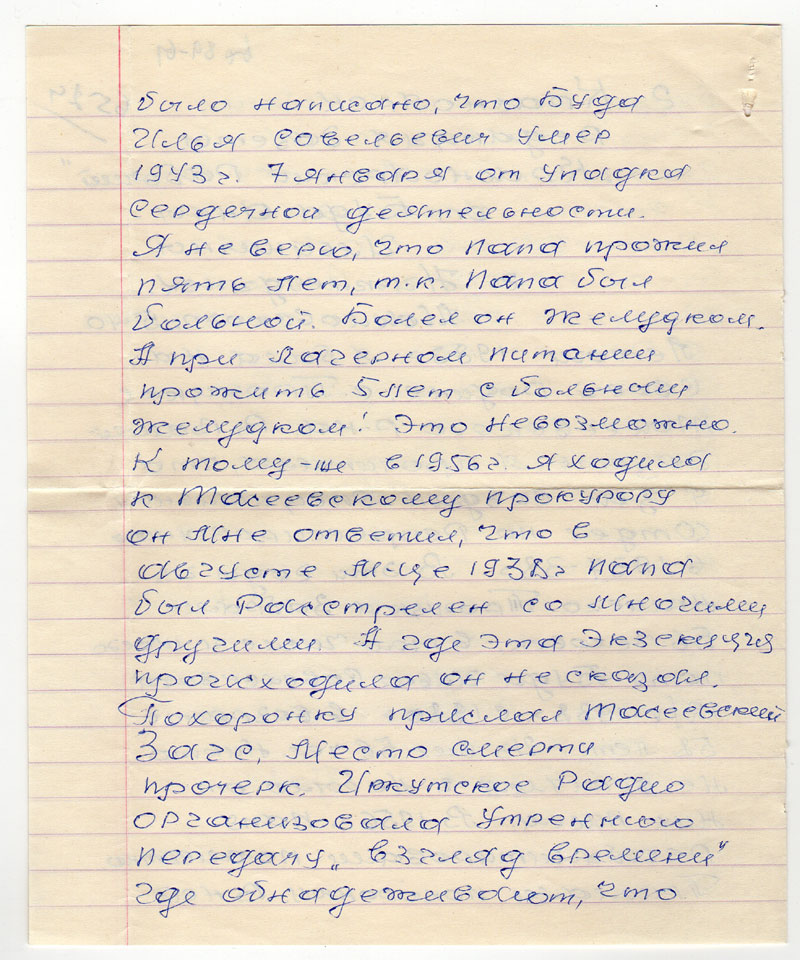 было написано, что Буда
Илья Совельевич умер
1943 г. 7 января от упадка
сердечной деятельности.
Я не верю, что папа прожил
пять лет, т.к. папа был
больной. Болел он желудком.
А при лагерном питании
прожить 5 лет с больным
желудком! Это невозможно.
К тому-же в 1956 г. я ходила
к Тасеевскому прокурору
он мне ответил, что в
августе м-це 1938 г папа
был Расстрелен со многими
другими А где эта Экзекуция
происходила он не сказал.
Похоронку прислал Тасеевский
Загс, Место смерти
прочерк. Иркутское Радио
организовала Утреннюю
передачу „взгляд времени"
где обнадеживают, что